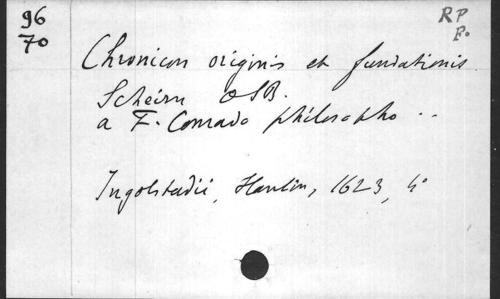 96
70
RP
P.
Chronicon originis et fundationis
Scheirn OSB.
a F. Conrado philosopho ..
Ingolstadii, Haulin, 1623, 4°